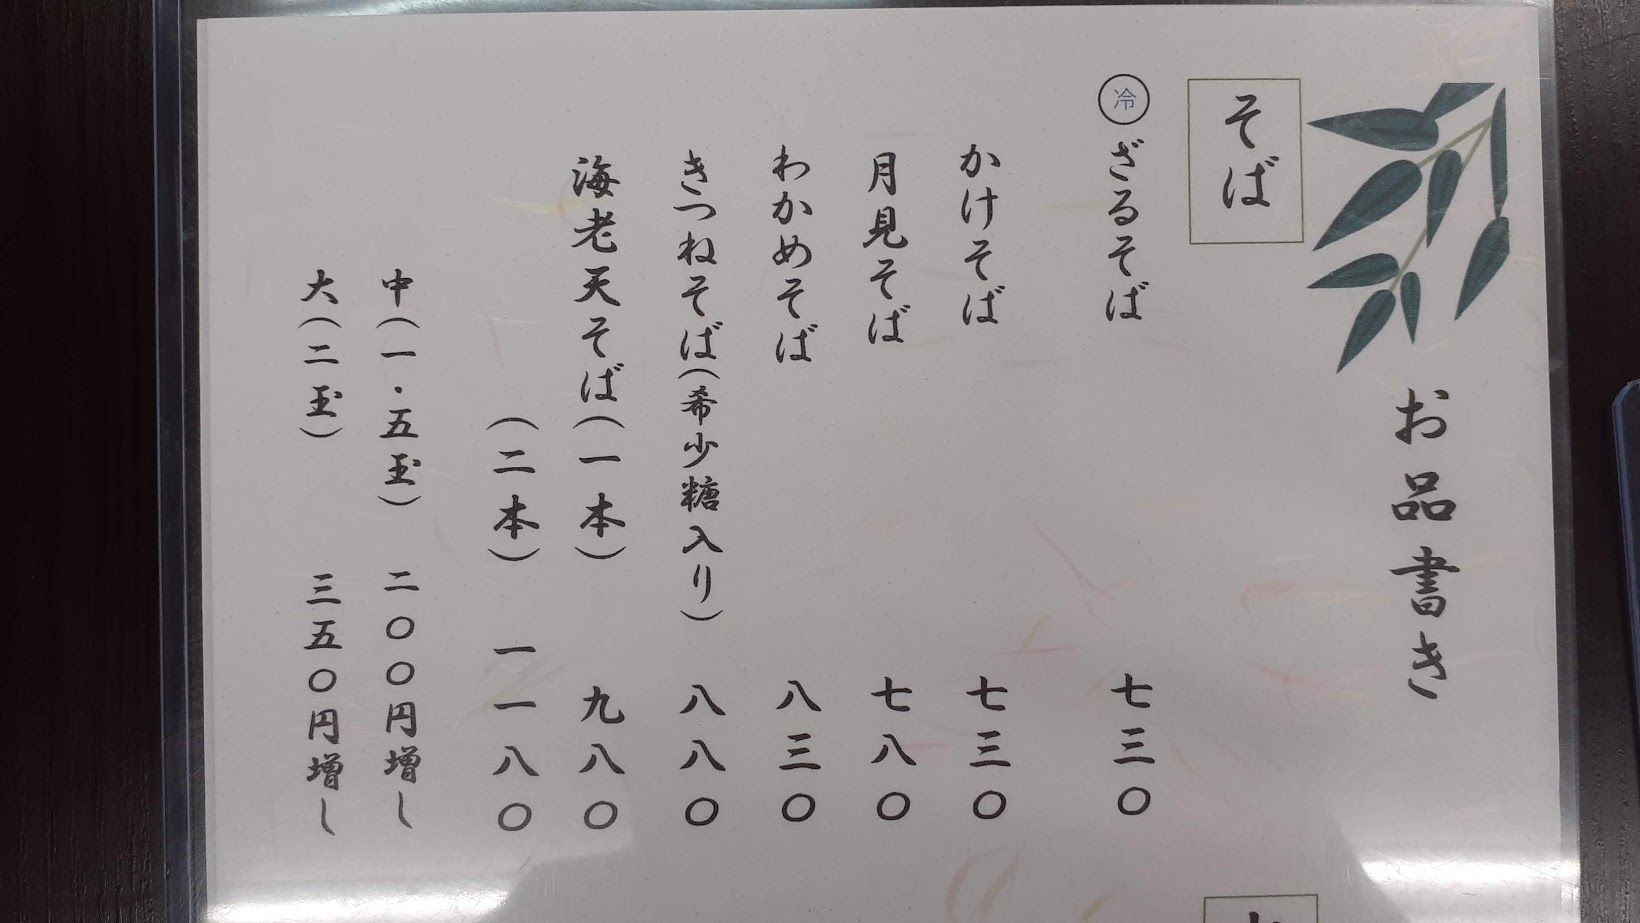 お品書き
そば
冷 ざるそば 七三〇
かけそば 七三〇
月見そば 七八〇
わかめそば 八三〇
きつねそば(希少糖入り) 八八〇
海老天そば(一本) 九八〇
(二本) 一一八〇
中(一・五玉) 二〇〇円増し
大(二玉) 三五〇円増し